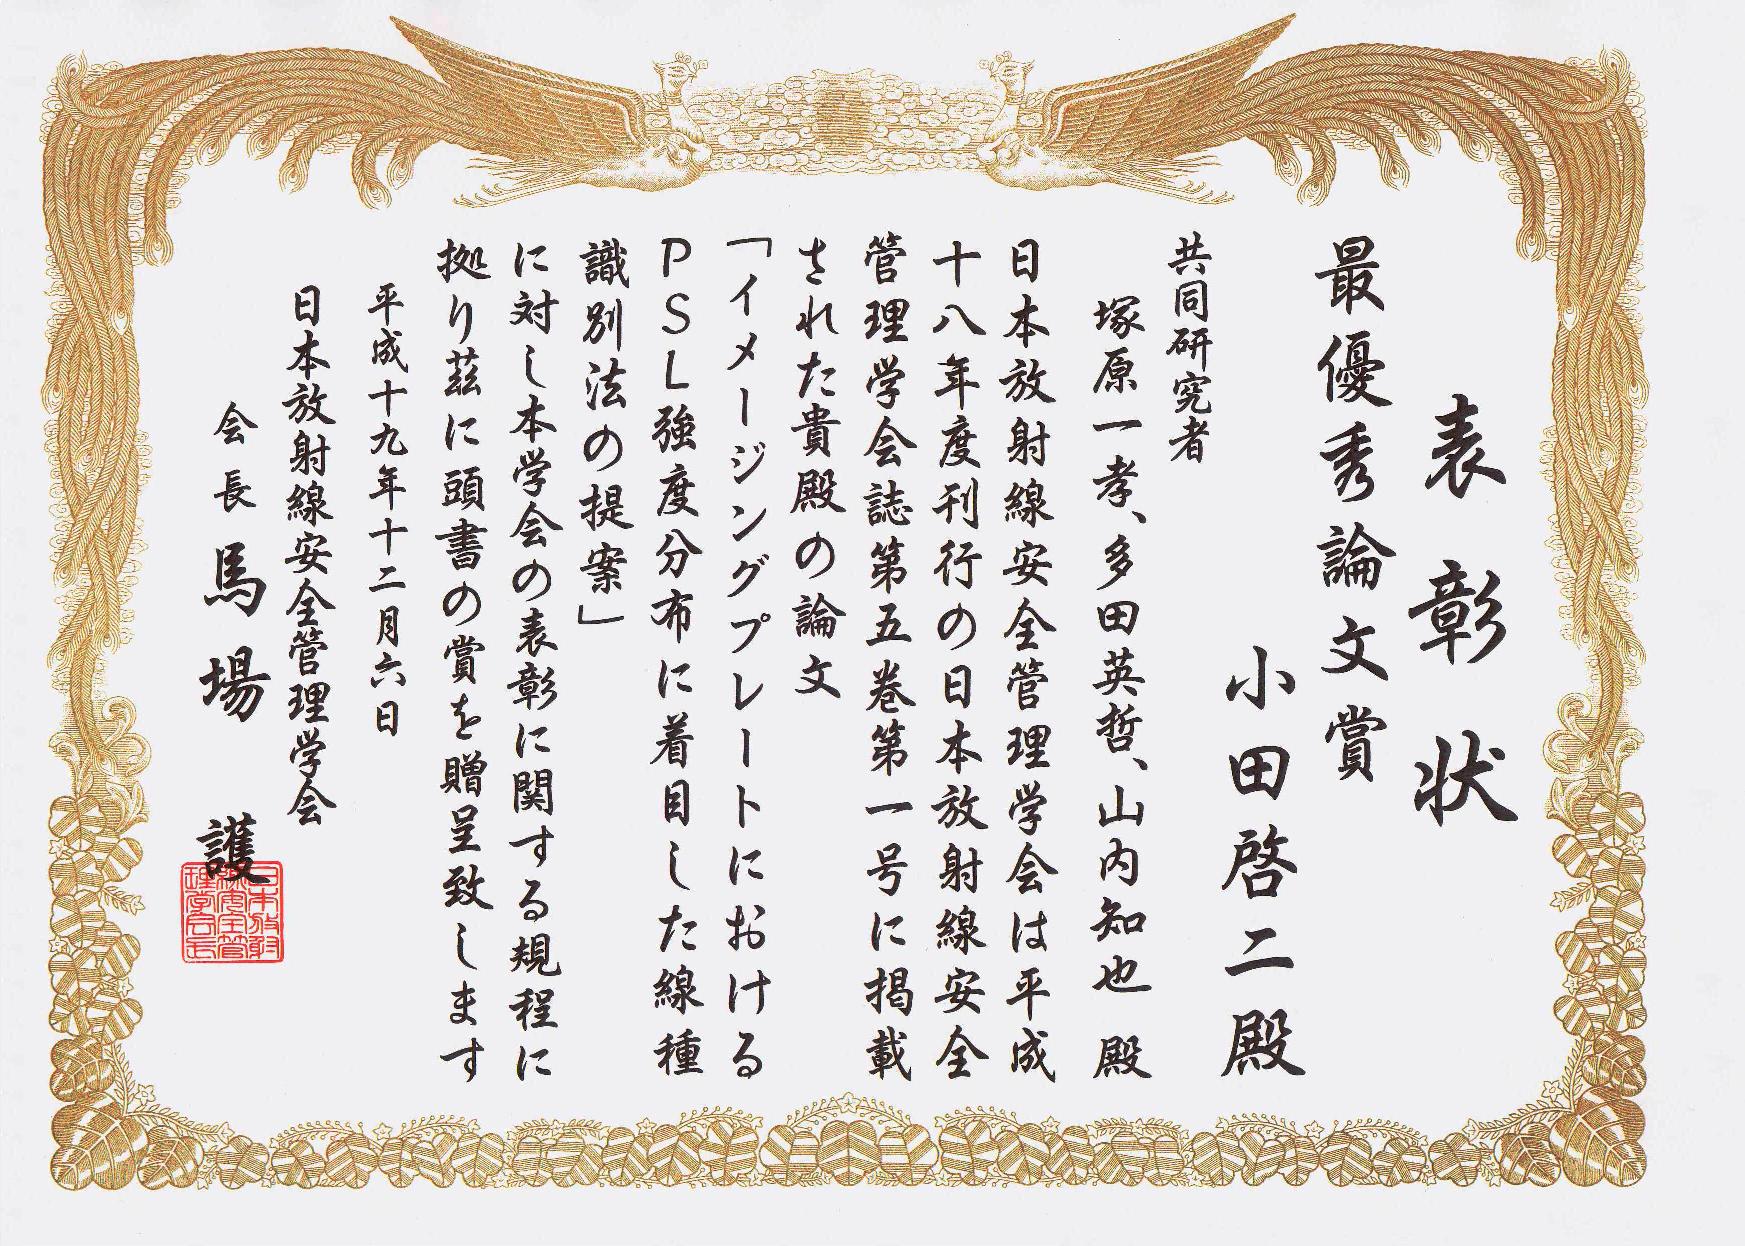 表彰状
最優秀論文賞
小田啓二殿
共同研究者
塚原一孝、多田英哲、山内知也 殿
日本放射線安全管理学会は平成
十八年度刊行の日本放射線安全
管理学会誌第五巻第一号に掲載
された貴殿の論文
「イメージングプレートにおける
PSL強度分布に着目した線種
識別法の提案」
に対し本学会の表彰に関する規程に
拠り茲に頭書の賞を贈呈致します
平成十九年十二月六日
日本放射線安全管理学会
会長 馬場 護
日本放射
線安全管
理学会長